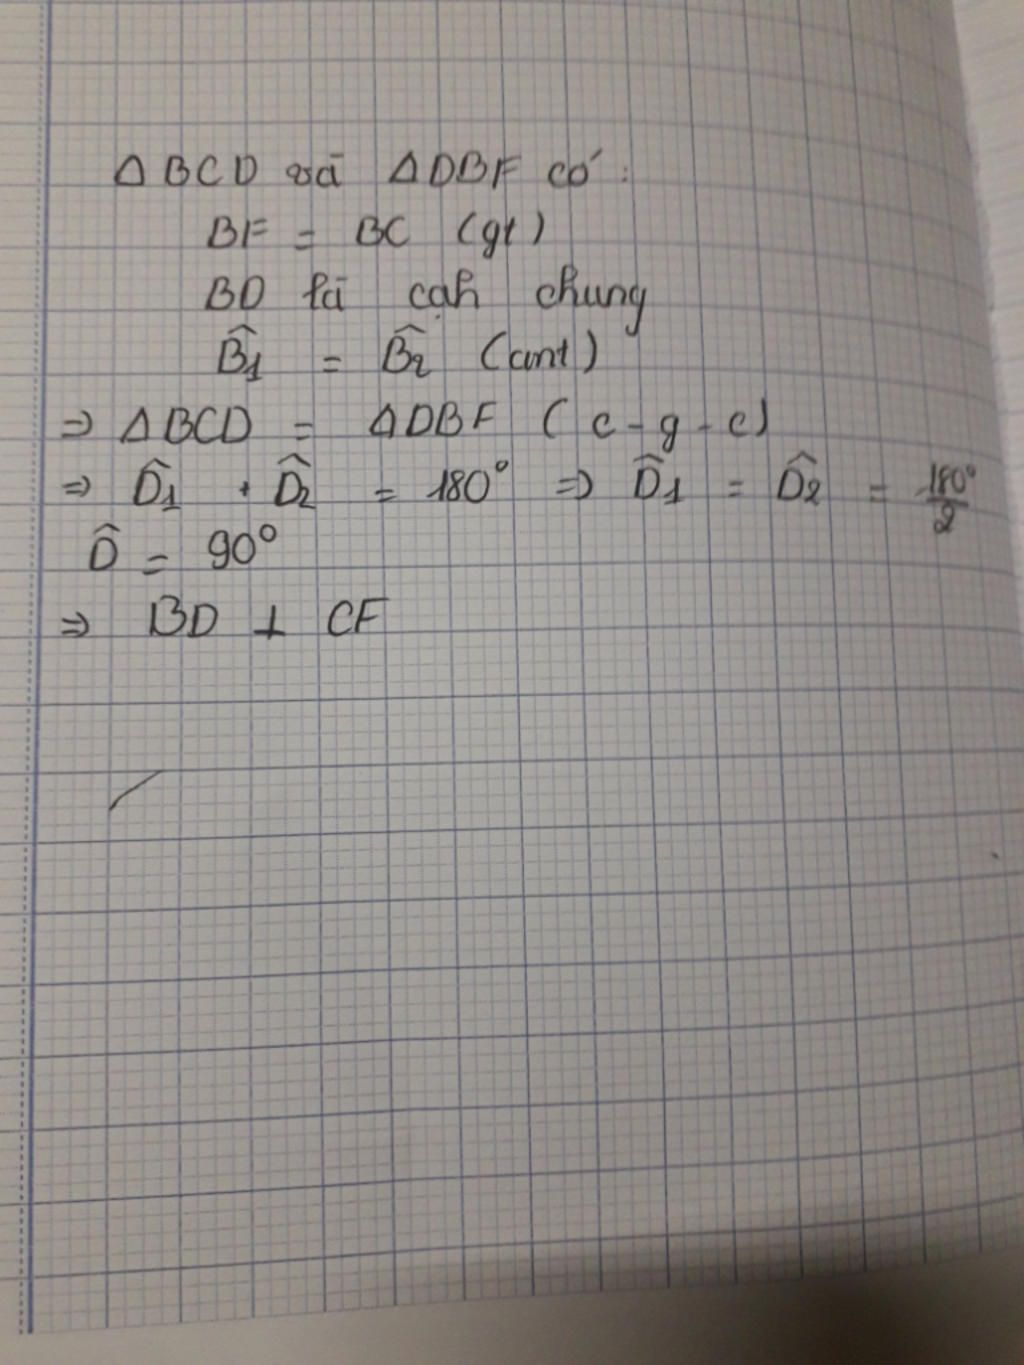 ΔBCD và ΔDBF có :
BF = BC (gt)
BD là cạh chung
B̂1 = B̂2 (cmt)
⇒ ΔBCD = ΔDBF ( c - g - c)
⇒ D̂1 + D̂2 = 180° ⇒ D̂1 = D̂2 = 180°/2
D̂ = 90°
⇒ BD ⊥ CF